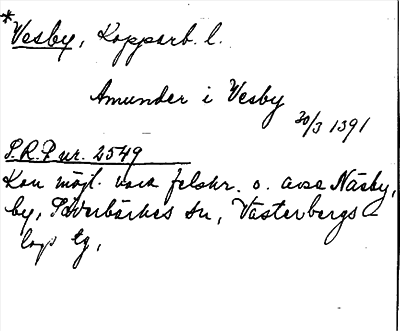 *Vesby, Kopparb. l.
Amunder i Vesby
30/3 1391
S.R.P nr. 2549
Kan möjl. vara felskr. o. avse Näsby,
by, Söderbärkes sn, Västerbergs-
lags tg,